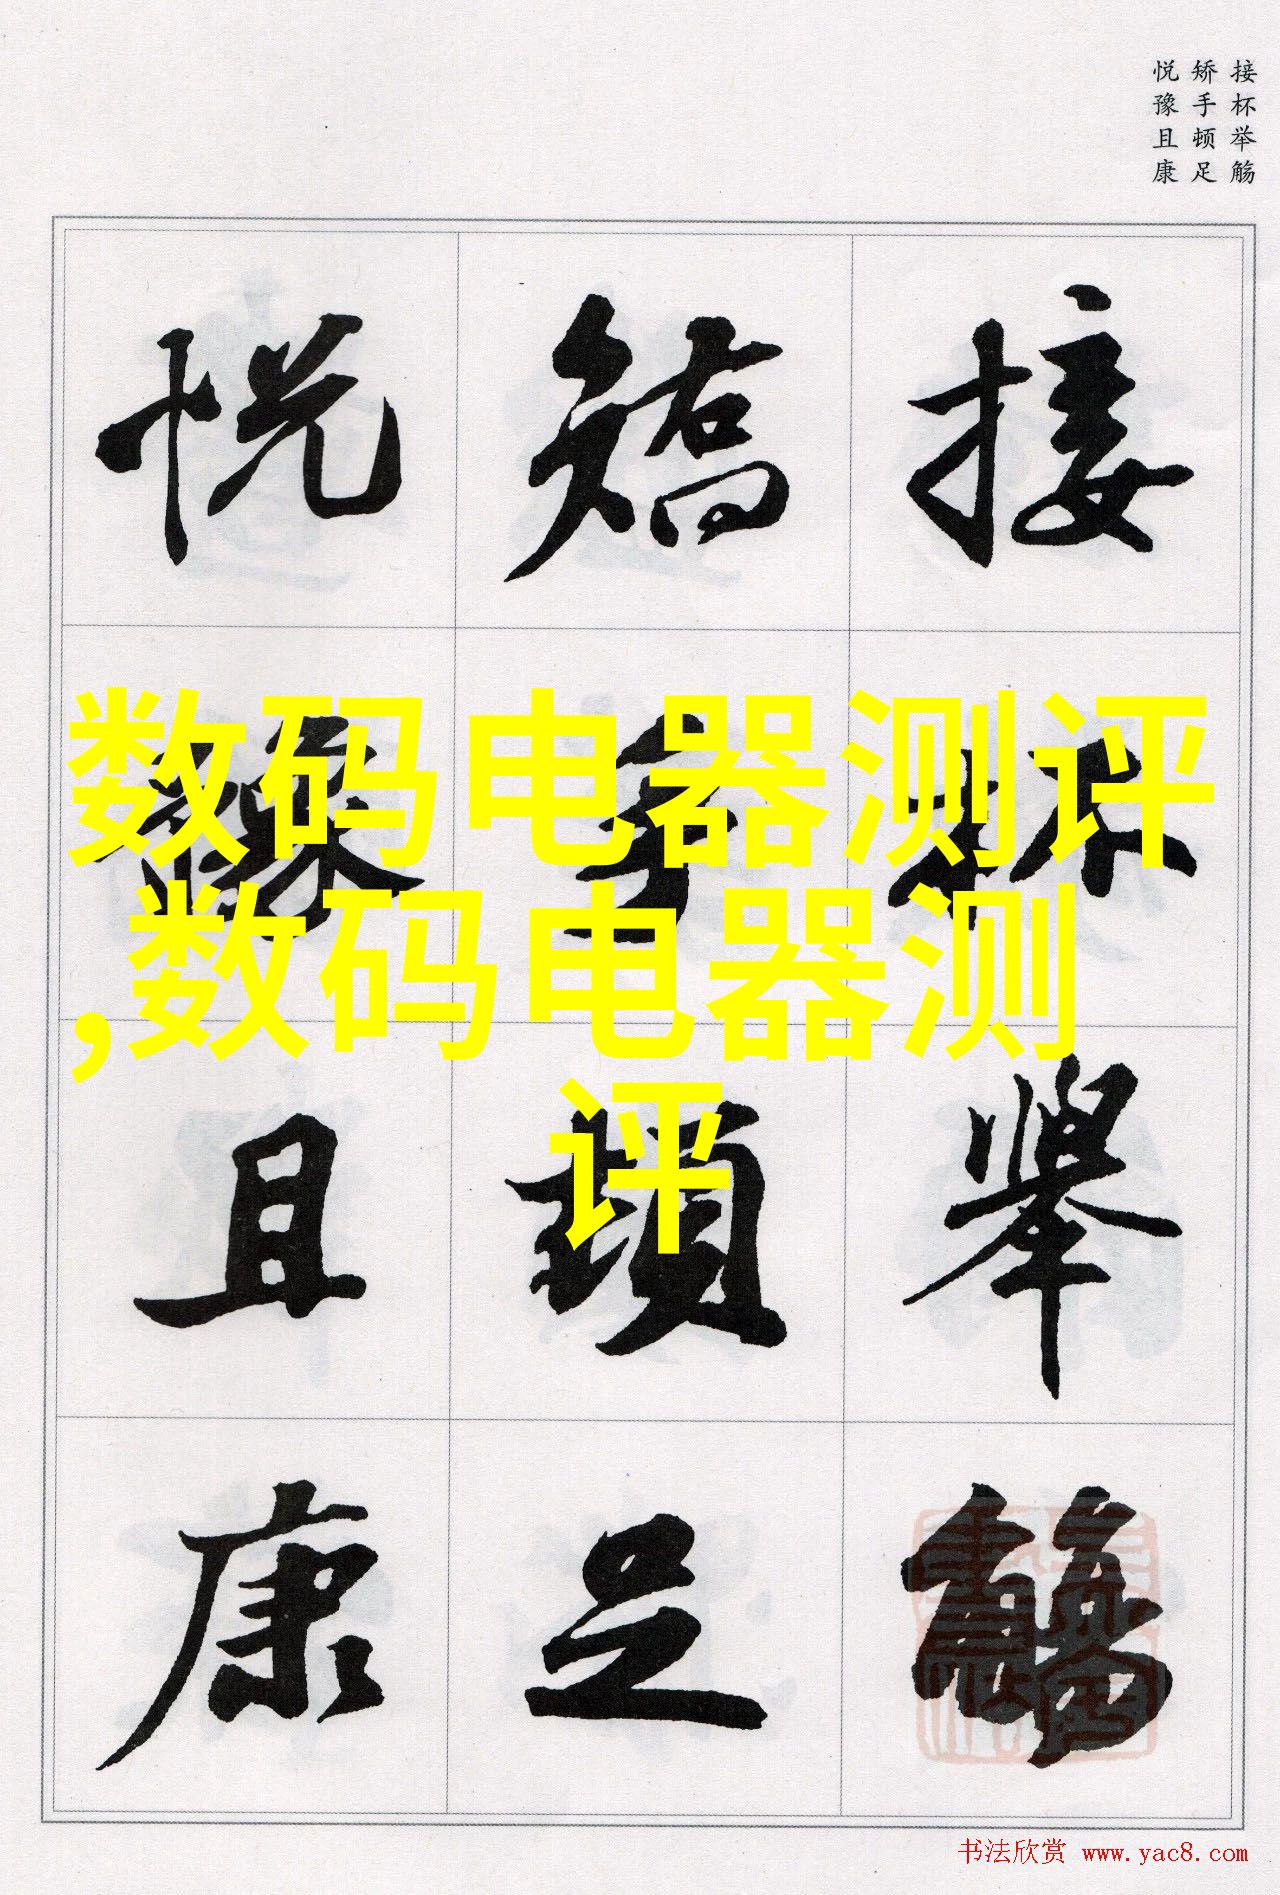 接杯举觞
矫手顿足
悦豫且康
接杯舉觴
矯手頓足
悦豫且康
数码电器测评
,数码电器测
评
书法欣赏 www.yac8.com